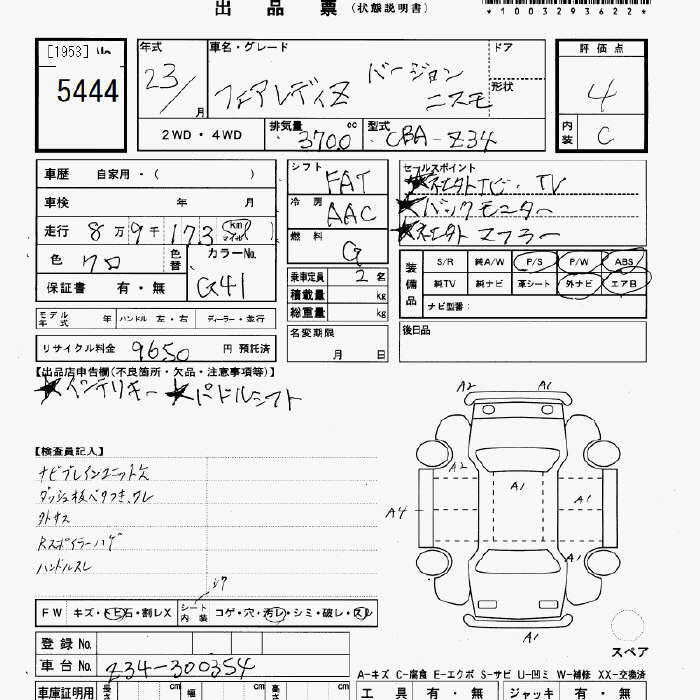 出品票 (状態説明書)
*1003293622*
[1953]
5444
年式 23/ 月
車名・グレード フェアレディZ バージョン ニスモ
ドア
形状
評価点 4
内装 C
2WD・4WD
排気量 3700 cc
型式 CBA-Z34
車歴 自家用・( )
車検 年 月
走行 8万9千173 km マイル
色 クロ 色替
カラーNo. G41
保証書 有・無
シフト FAT
冷房 AAC
燃料 G
乗車定員 2名
積載量 kg
総重量 kg
セールスポイント
★社外ナビ・TV
★バックモニター
★社外マフラー
装備品
S/R 純A/W P/S P/W ABS
純TV 純ナビ 革シート 外ナビ エアB
ナビ型番：
モデル年式 年 ハンドル 左・右 ディーラー・並行
名変期限 月 日
後日品
リサイクル料金 9650 円 預託済
【出品店申告欄(不良箇所・欠品・注意事項等)】
★インテリキー ★パドルシフト
【検査員記入】
ナビブレインユニット欠
ダッシュ板ベタつき、ワレ
外キズ
Rスポイラーハゲ
ハンドルスレ
A2
A1
A2
A1
A1
A4
A1
A1
A1
スペア
FW キズ・トビ石・割レX
シート内装 コゲ・穴・汚レ・シミ・破レ・スレ
シワ
登録No.
車台No. Z34-300354
A-キズ C-腐食 E-エクボ S-サビ U-凹ミ W-補修 XX-交換済
車庫証明用 長さ cm 幅 cm 高さ cm
工具 有・無 ジャッキ 有・無